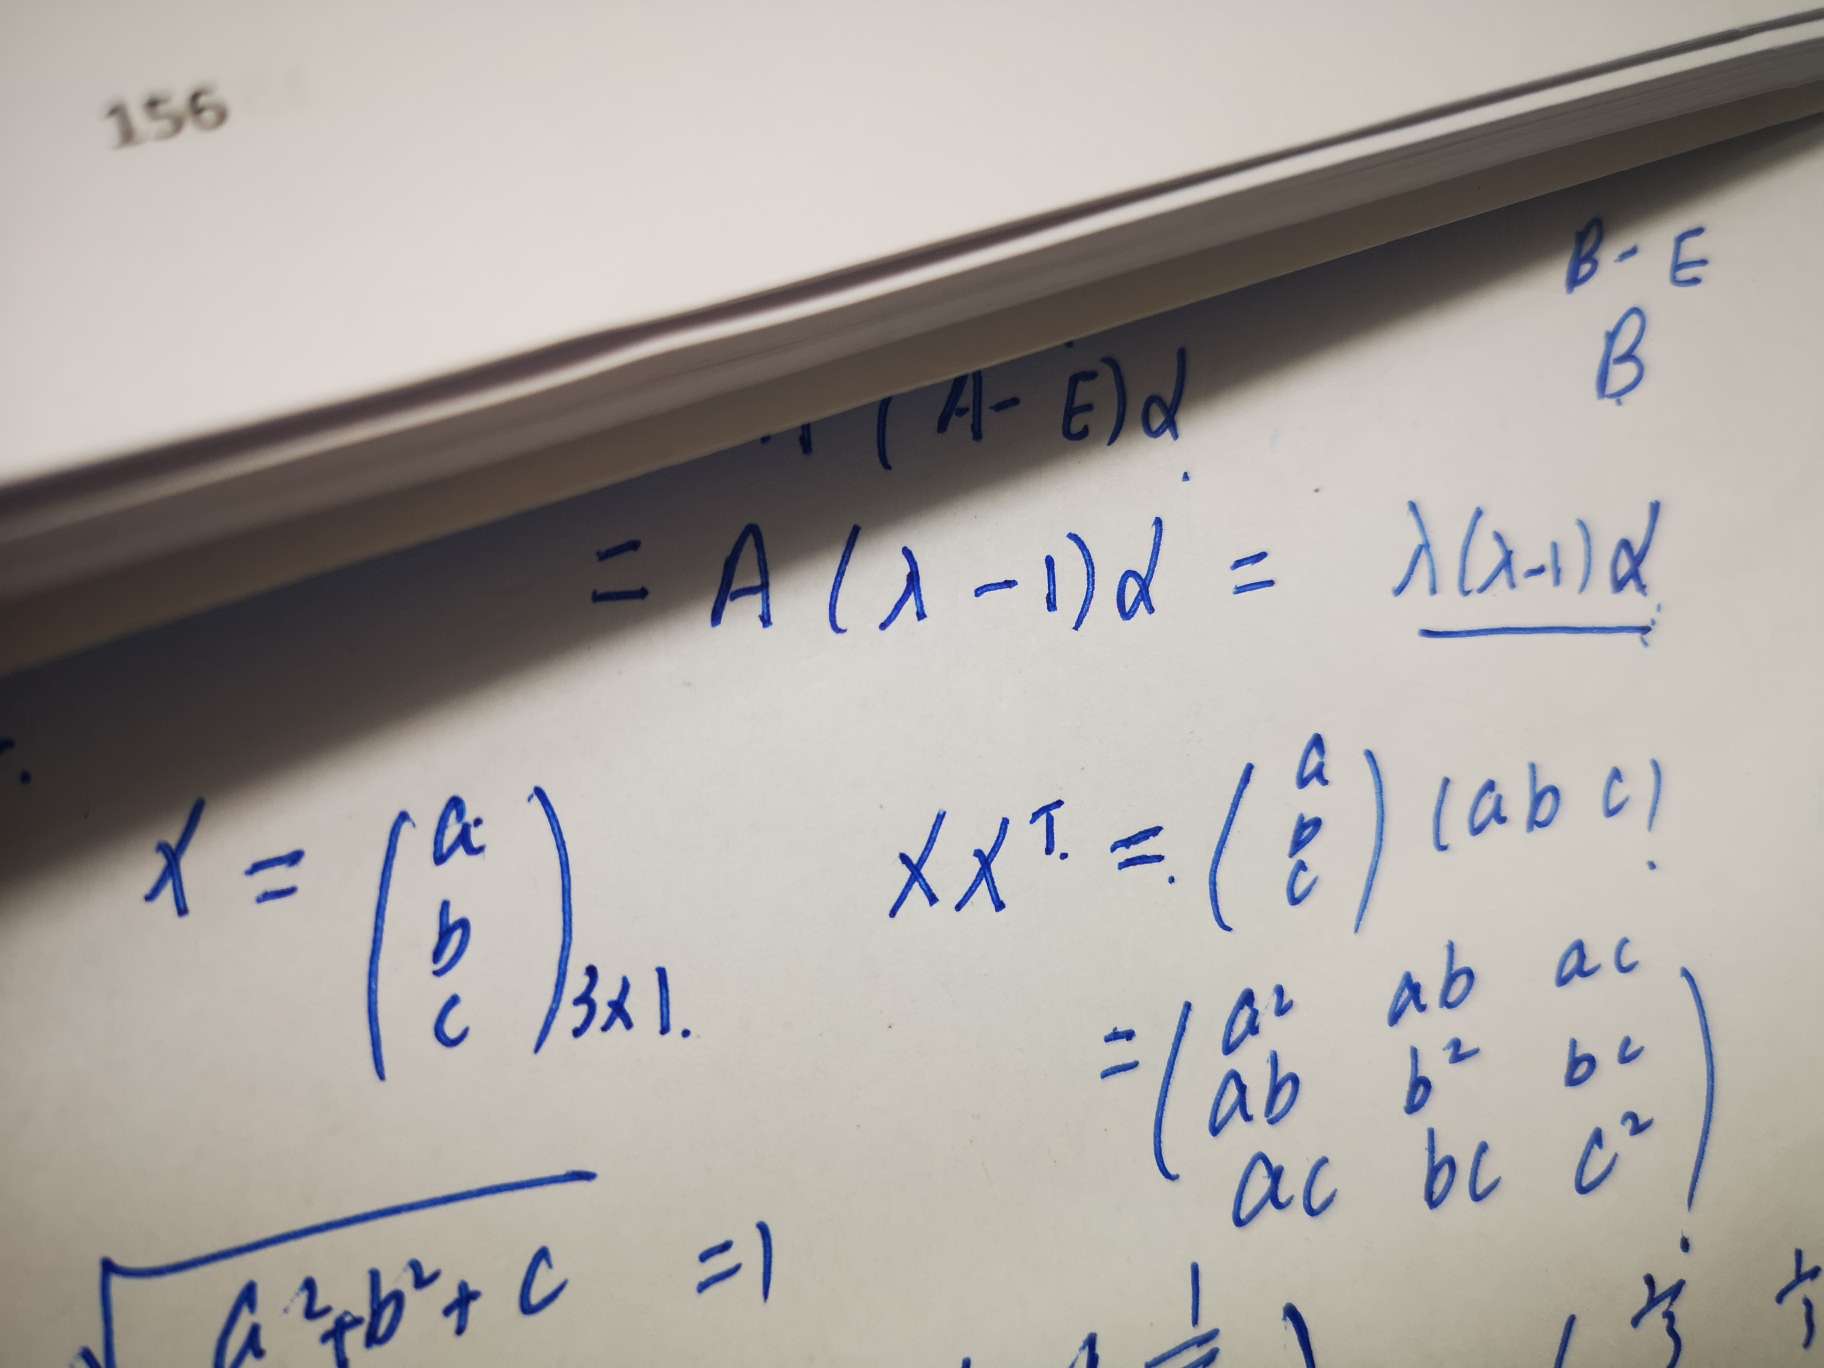 156
B - E
B
(A - E)α
= A (λ - 1)α = λ(λ-1)α
X = (a b c)3×1.
XXᵀ. = (a b c) (a b c)
= (a² ab ac
ab b² bc
ac bc c²)
√a²+b²+c =1
1
1/3 1/3